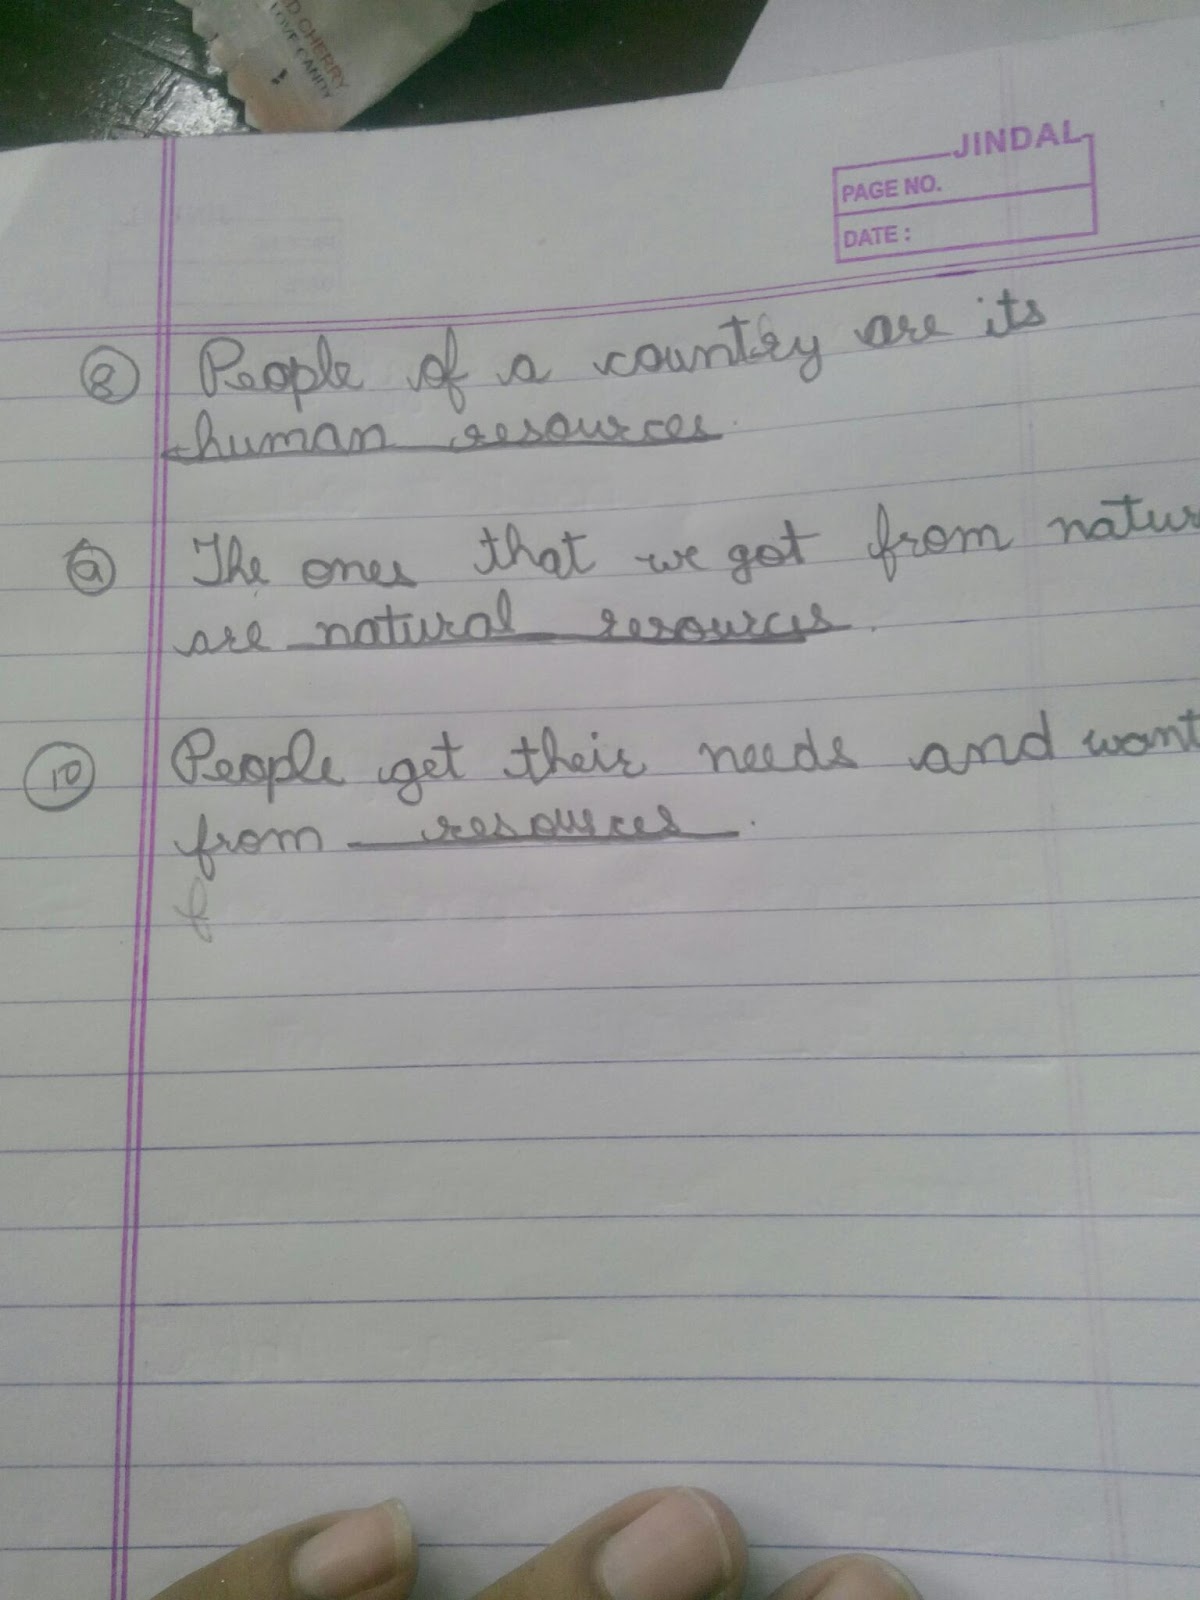 D CHERRY
LOVE CANDY
JINDAL
PAGE NO.
DATE :
8 People of a country are its
human resources.
9 The ones that we got from natur
are natural resources.
10 People get their needs and want
from resources.
f